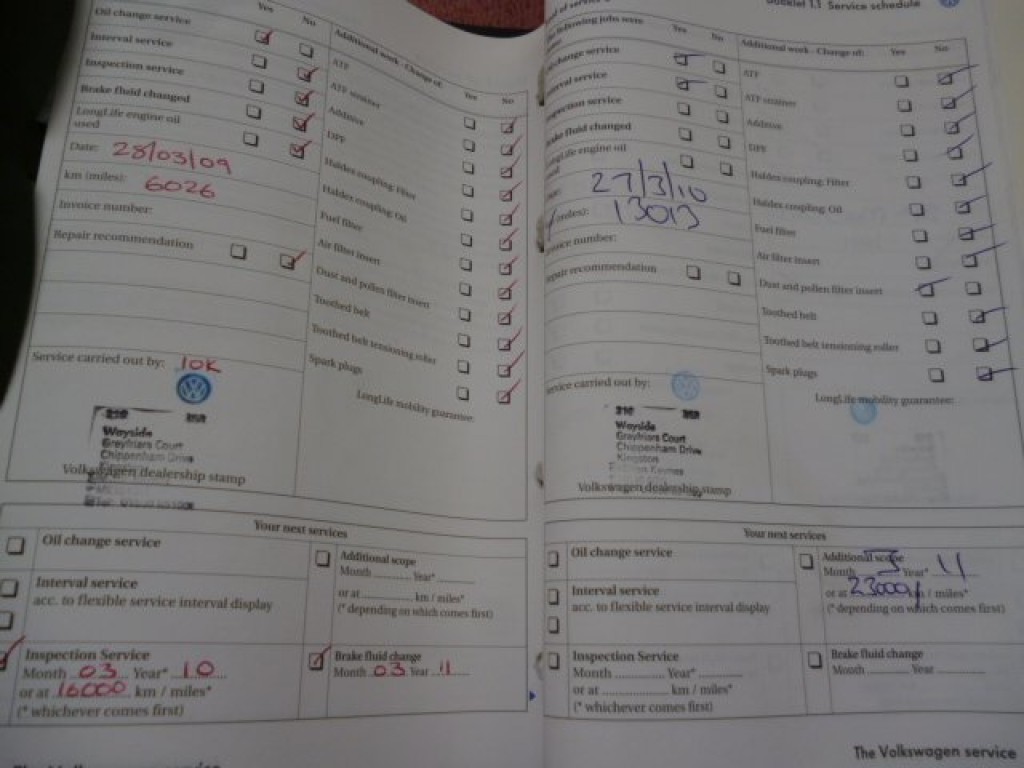 Yes No
Oil change service
Interval service
Inspection service
Brake fluid changed
LongLife engine oil
used
Date: 28/03/09
km (miles): 6026
Invoice number:
Repair recommendation
Service carried out by: 10K
Wayside
Greyfriars Court
Chippenham Drive
Volkswagen dealership stamp
Additional work - Change of: Yes No
ATF
ATF strainer
Additive
DPF
Haldex coupling: Filter
Haldex coupling: Oil
Fuel filter
Air filter insert
Dust and pollen filter insert
Toothed belt
Toothed belt tensioning roller
Spark plugs
LongLife mobility guarantee:
Your next services
Oil change service
Interval service
acc. to flexible service interval display
Inspection Service
Month 03 Year* 10
or at 16000 km / miles*
(* whichever comes first)
Additional scope
Month Year*
or at km / miles*
(* depending on which comes first)
Brake fluid change
Month 03 Year 11
The Volkswagen service
Booklet 1.1 Service schedule
of service
following jobs were
Yes No
change service
Interval service
Inspection service
Brake fluid changed
LongLife engine oil
27/3/10
(miles): 13013
Invoice number:
Repair recommendation
Service carried out by:
Wayside
Greyfriars Court
Chippenham Drive
Kingston
Volkswagen dealership stamp
Additional work - Change of: Yes No
ATF
ATF strainer
Additive
DPF
Haldex coupling: Filter
Haldex coupling: Oil
Fuel filter
Air filter insert
Dust and pollen filter insert
Toothed belt
Toothed belt tensioning roller
Spark plugs
LongLife mobility guarantee:
Your next services
Oil change service
Interval service
acc. to flexible service interval display
Inspection Service
Month Year*
or at km / miles*
(* whichever comes first)
Additional scope
Month Year* 11
or at 23000 km / miles*
(* depending on which comes first)
Brake fluid change
Month Year
The Volkswagen service